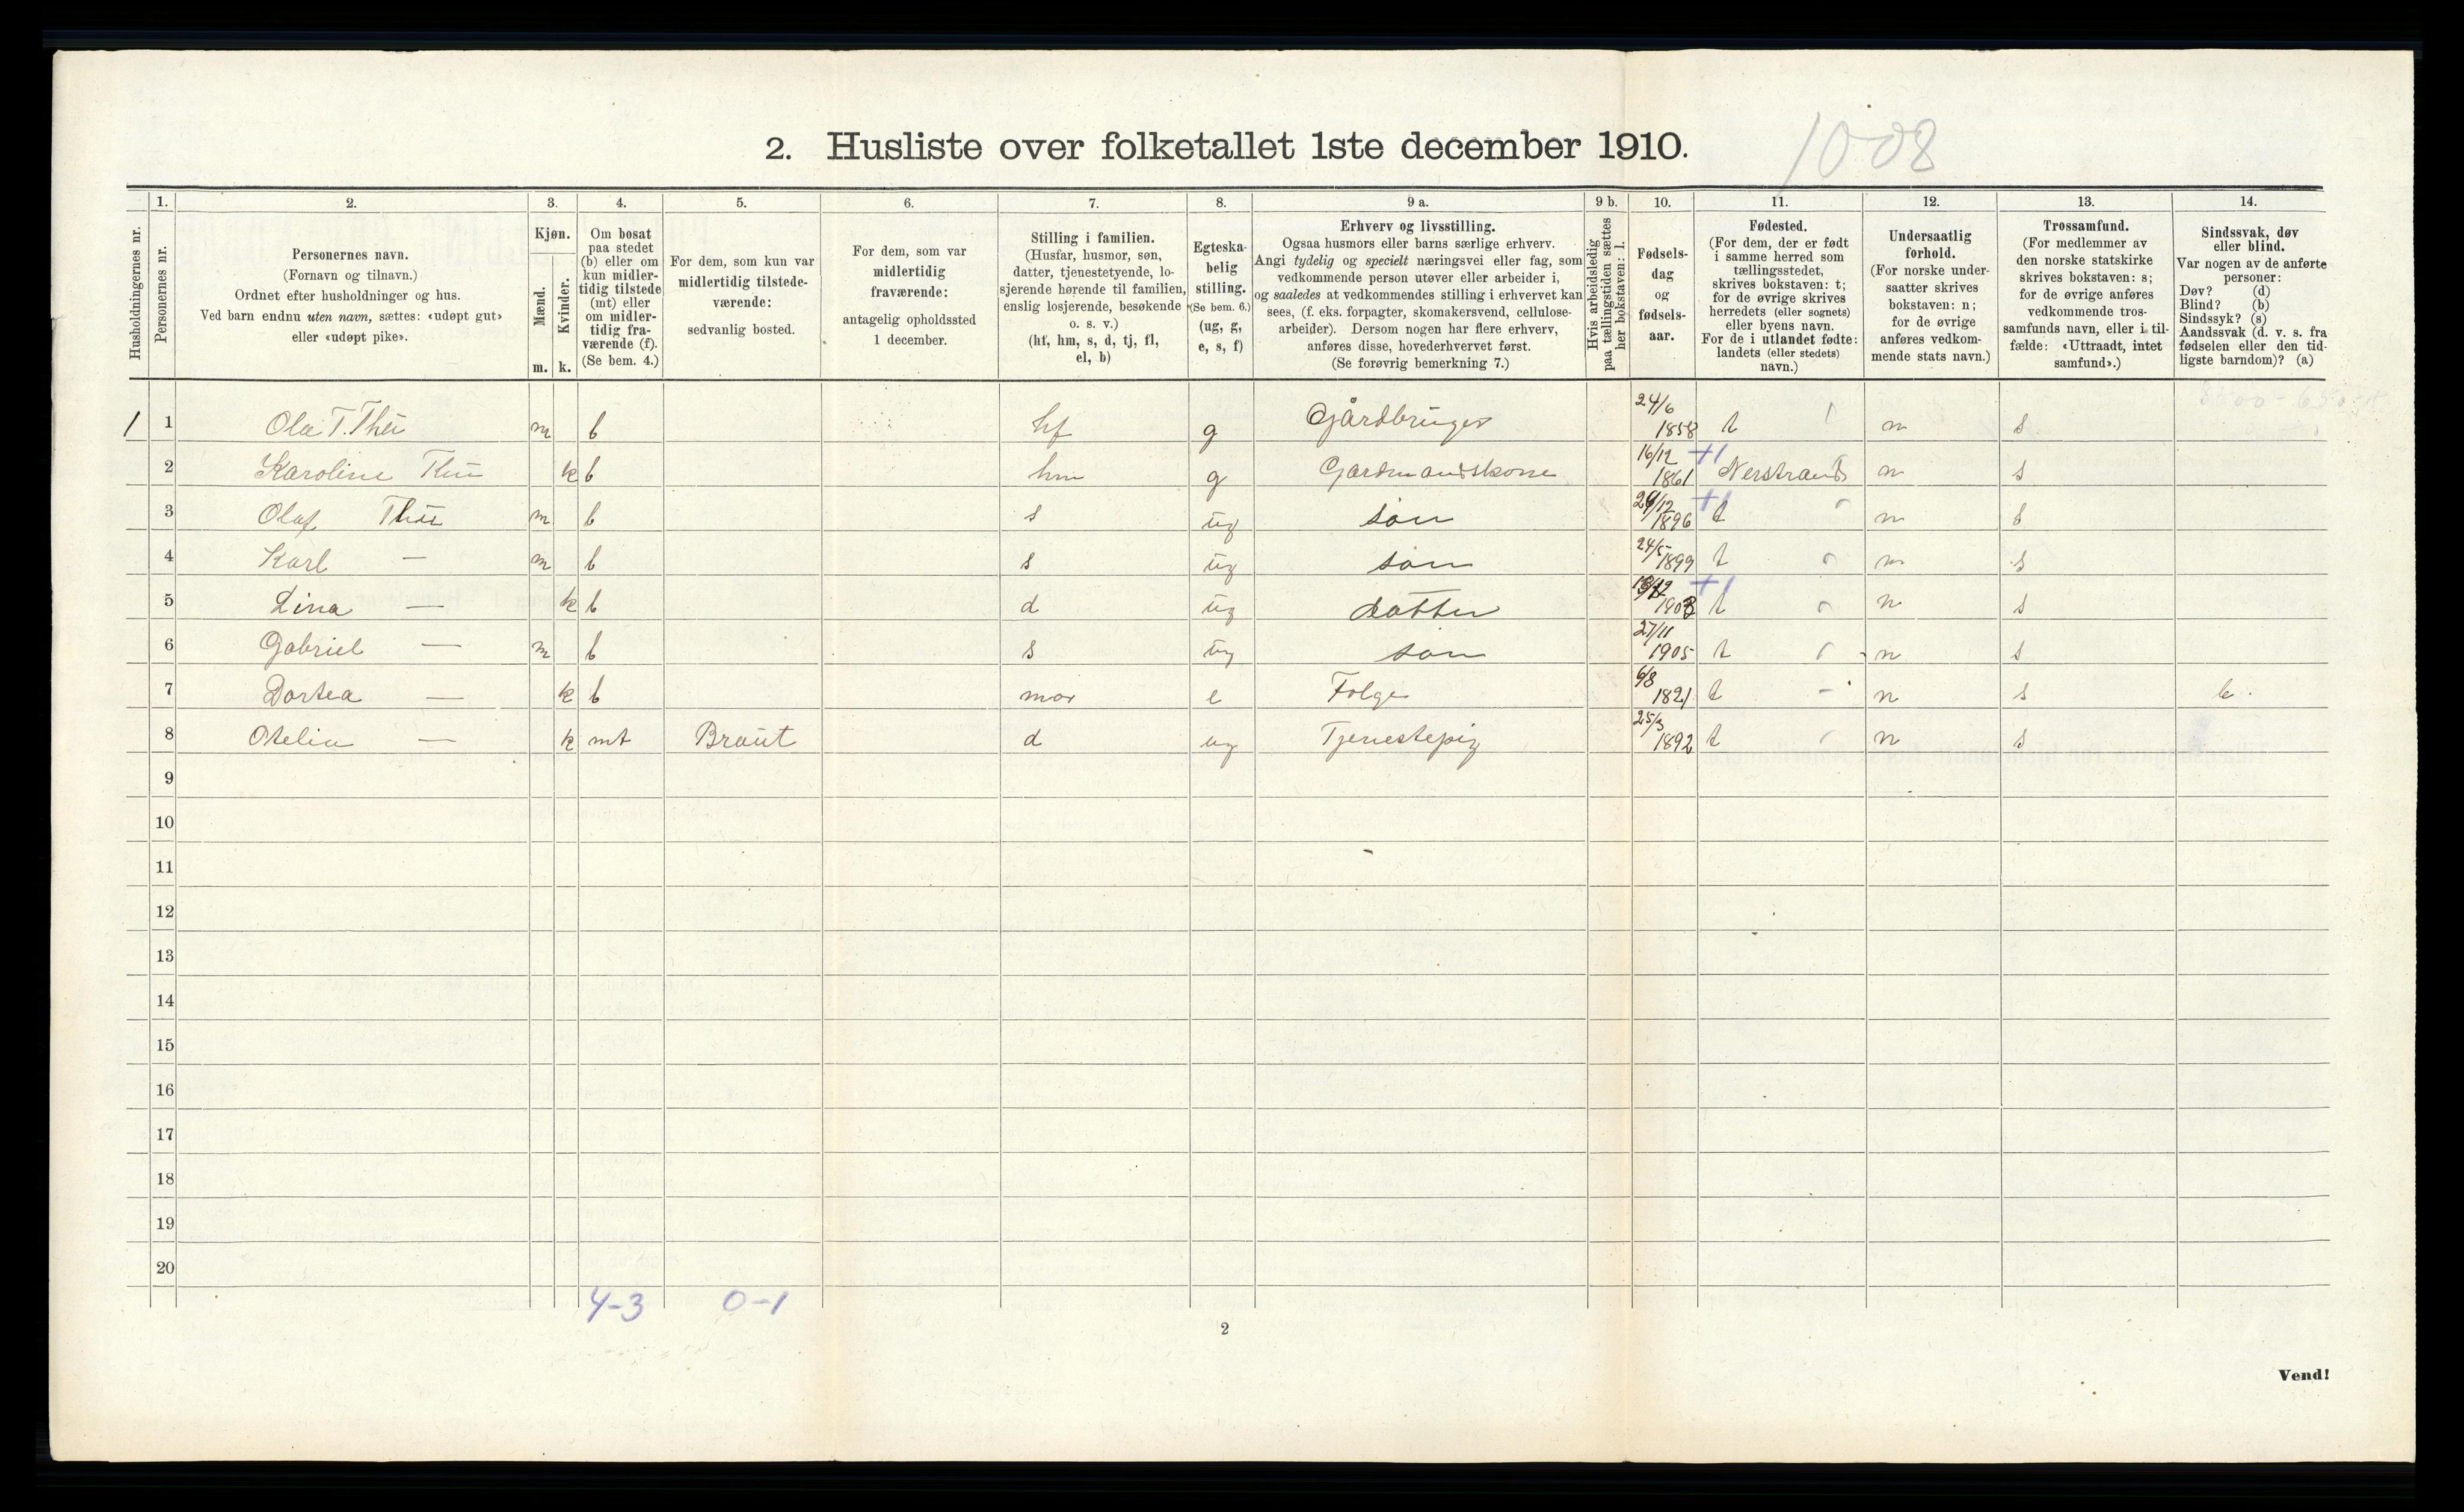 2. Husliste over folketallet 1ste december 1910.
1008
Husholdningernes nr.
1. Personernes nr.
2. Personernes navn.
(Fornavn og tilnavn.)
Ordnet efter husholdninger og hus.
Ved barn endnu uten navn, sættes: «udøpt gut»
eller «udøpt pike».
3. Kjøn.
Mænd. Kvinder.
m. k.
4. Om bosat
paa stedet
(b) eller om
kun midler-
tidig tilstede
(mt) eller
om midler-
tidig fra-
værende (f).
(Se bem. 4.)
5. For dem, som kun var
midlertidig tilstede-
værende:
sedvanlig bosted.
6. For dem, som var
midlertidig
fraværende:
antagelig opholdssted
1 december.
7. Stilling i familien.
(Husfar, husmor, søn,
datter, tjenestetyende, lo-
sjerende hørende til familien,
enslig losjerende, besøkende
o. s. v.)
(hf, hm, s, d, tj, fl,
el, b)
8. Egteska-
belig
stilling.
(Se bem. 6.)
(ug, g,
e, s, f)
9 a. Erhverv og livsstilling.
Ogsaa husmors eller barns særlige erhverv.
Angi tydelig og specielt næringsvei eller fag, som
vedkommende person utøver eller arbeider i,
og saaledes at vedkommendes stilling i erhvervet kan
sees, (f. eks. forpagter, skomakersvend, cellulose-
arbeider). Dersom nogen har flere erhverv,
anføres disse, hovederhvervet først.
(Se forøvrig bemerkning 7.)
9 b. Hvis arbeidsledig
paa tællingstiden sættes
her bokstaven: l.
10. Fødsels-
dag
og
fødsels-
aar.
11. Fødested.
(For dem, der er født
i samme herred som
tællingsstedet,
skrives bokstaven: t;
for de øvrige skrives
herredets (eller sognets)
eller byens navn.
For de i utlandet fødte:
landets (eller stedets)
navn.)
12. Undersaatlig
forhold.
(For norske under-
saatter skrives
bokstaven: n;
for de øvrige
anføres vedkom-
mende stats navn.)
13. Trossamfund.
(For medlemmer av
den norske statskirke
skrives bokstaven: s;
for de øvrige anføres
vedkommende tros-
samfunds navn, eller i til-
fælde: «Uttraadt, intet
samfund».)
14. Sindssvak, døv
eller blind.
Var nogen av de anførte
personer:
Døv? (d)
Blind? (b)
Sindssyk? (s)
Aandssvak (d. v. s. fra
fødselen eller den tid-
ligste barndom)? (a)
1 1 Ola T. m b hf g Gårdbruger 24/6 1858 t n s
2 Karoline k b hm g Gardmandskone 16/12 1861 Nerstrand n s
3 Olaf m b s ug søn /12 1896 t n s
4 Karl — m b s ug søn 24/5 1899 t n s
5 Lina — k b d ug datter 1903 t n s
6 Gabriel — m b s ug søn 27/11 1905 t n s
7 Dortea — k b mor e Folge 6/8 1821 t - n s b.
8 Otelia — k mt Braut d ug Tjenestepig 25/3 1892 t n s
9
10
11
12
13
14
15
16
17
18
19
20
4-3 0-1
2
Vend!